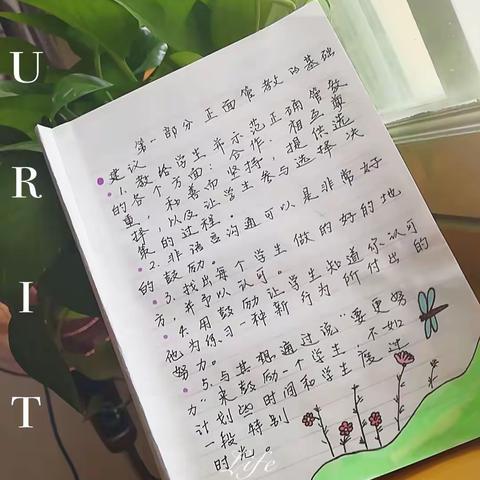 第一部分 正面管教的基础
建议
1. 教给学生并示范正确管教
的各个方面：合作、相互尊
重、和善而坚持，提供选
择，以及让学生参与选择决
策的过程。
2. 非语言沟通可以是非常好
的鼓励。
3. 找出每个学生做的好的地
方，并予以认可。
4. 用鼓励让学生知道你认可
他为练习一种新行为所付出的
努力。
5. 与其想通过说“要更努
力”来鼓励一个学生，不如
计划些时间和学生度过
一段特别
时光。
U
R
I
T
Life